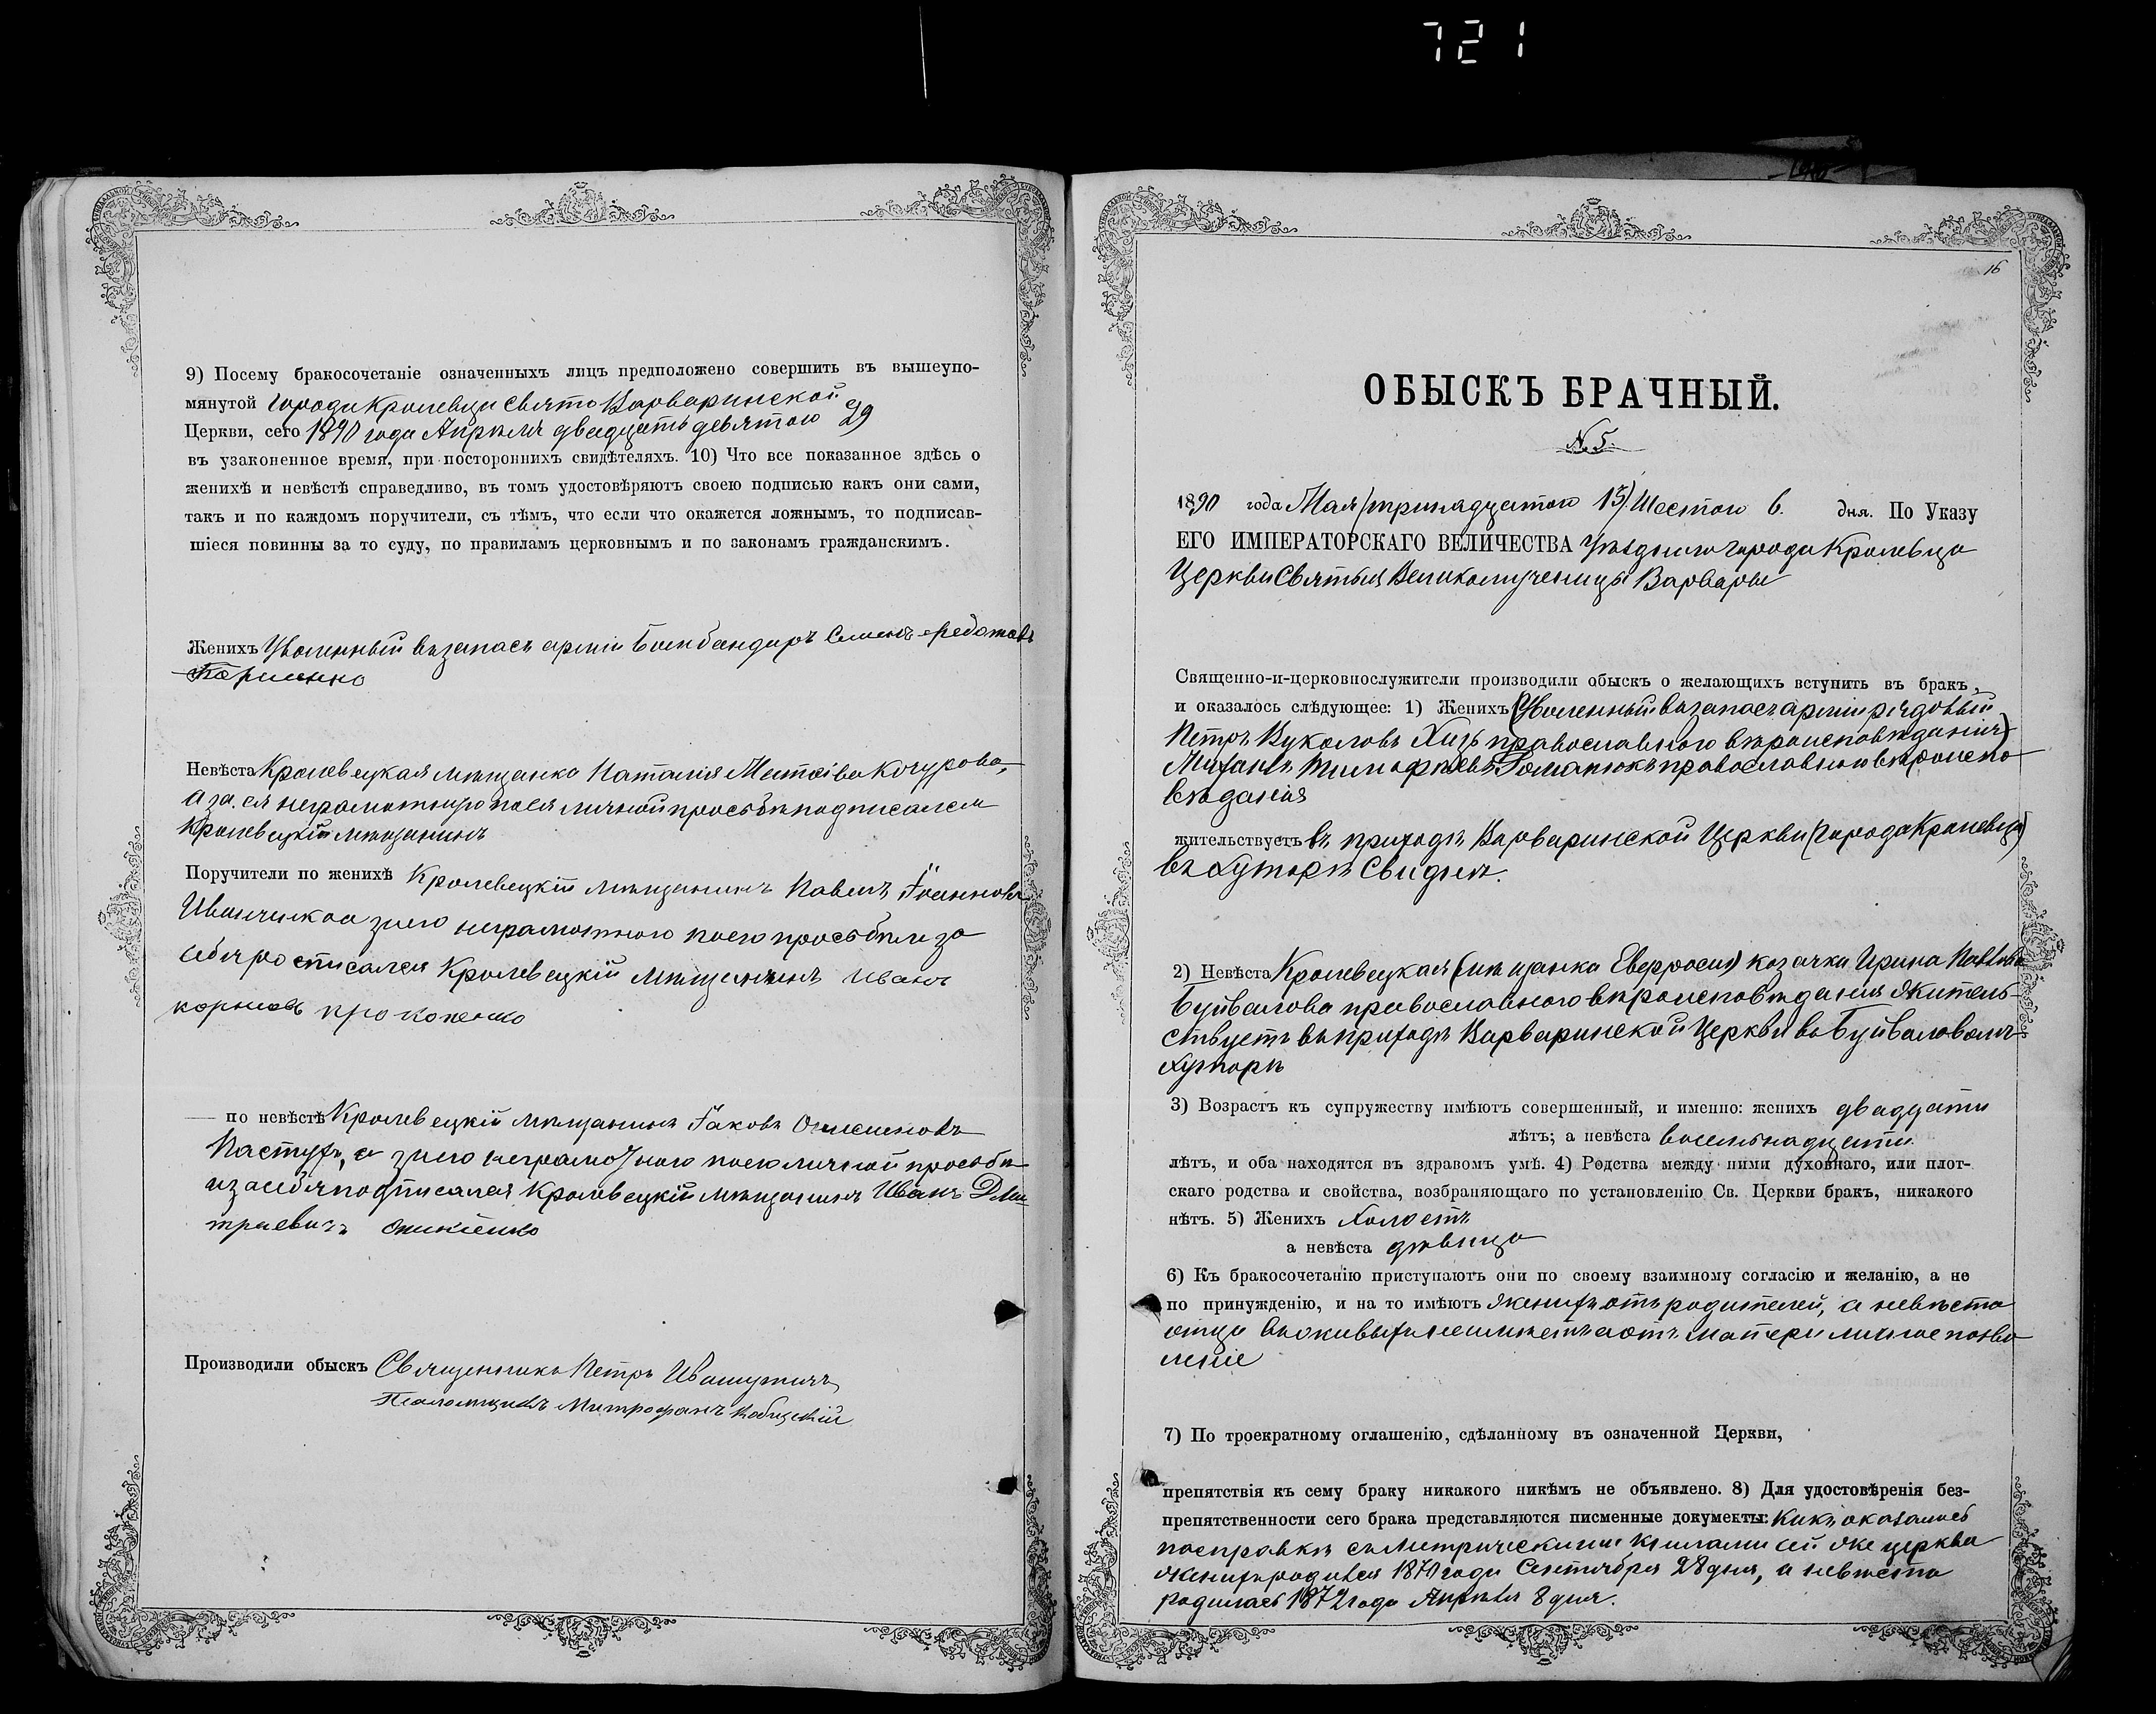 721
9) Посему бракосочетаніе означенныхъ лицъ предположено совершить въ вышеупо-
мянутой города Кролевца Свято Варваринской
Церкви, сего 1890 года Апрѣля двадцать девятого 29
въ узаконенное время, при постороннихъ свидѣтеляхъ. 10) Что все показанное здѣсь о
женихѣ и невѣстѣ справедливо, въ томъ удостовѣряютъ своею подписью какъ они сами,
такъ и по каждомъ поручители, съ тѣмъ, что если что окажется ложнымъ, то подписав-
шіеся повинны за то суду, по правиламъ церковнымъ и по законамъ гражданскимъ.
Женихъ Уволенный въ запасъ арміи Бомбандиръ Семенъ Федотовъ
Невѣста Кролевецкая мѣщанка Наталія Матвѣева Кочурова,
а за ея неграмотную по ея личной просьбѣ подписался
Кролевецкій мѣщанинъ
Поручители по женихѣ Кролевецкій мѣщанинъ Павелъ Іоанновъ
Иванченко а за его неграмотного по его просьбѣ и за
себя росписался Кролевецкій мѣщанинъ Иванъ
корнѣевъ прокопенко
— по невѣстѣ Кролевецкій мѣщанинъ Іаковъ Онисимовъ
Пастухъ, а за его неграмотного по его личной просьбѣ
и за себя подписался Кролевецкій мѣщанинъ Иванъ Дми
триевичъ Оникіенко
Производили обыскъ Священникъ Петръ Ивашутичъ
Псаломщикъ Митрофанъ Кобицкій
16
ОБЫСКЪ БРАЧНЫЙ.
№ 5.
1890 года Мая (тринадцатого 13). Шестого 6. дня. По Указу
ЕГО ИМПЕРАТОРСКАГО ВЕЛИЧЕСТВА уѣздного города Кролевца
Церкви Святыя Великомученицы Варвары
Священно-и-церковнослужители производили обыскъ о желающихъ вступить въ бракъ,
и оказалось слѣдующее: 1) Женихъ (Уволенный въ запасъ арміи рядовый
Петръ Вуколовъ Хизь православного вѣроисповѣданія)
Михаилъ Тимофѣевъ Романюкъ православного вѣроиспо
вѣданія
жительствуетъ въ приходѣ Варваринской Церкви (города Кролевца)
въ хуторѣ Свиднѣ.
2) Невѣста Кролевецкая (мѣщанка Евфросин) козачка Ирина Павлова
Буйвалова православного вѣроисповѣданія житель-
ствуетъ въ приходѣ Варваринской Церкви въ Буйваловомъ
хуторѣ
3) Возрастъ къ супружеству имѣютъ совершенный, и именно: женихъ двадцати
лѣтъ; а невѣста восемьнадцати
лѣтъ, и оба находятся въ здравомъ умѣ. 4) Родства между ними духовнаго, или плот-
скаго родства и свойства, возбраняющаго по установленію Св. Церкви бракъ, никакого
нѣтъ. 5) Женихъ Холостъ
а невѣста дѣвица
6) Къ бракосочетанію приступаютъ они по своему взаимному согласію и желанію, а не
по принужденію, и на то имѣютъ женихъ отъ родителей, а невѣста
отца въ живыхъ не имѣетъ а отъ матери личное позво
леніе
7) По троекратному оглашенію, сдѣланному въ означенной Церкви,
препятствія къ сему браку никакого никѣмъ не объявлено. 8) Для удостовѣренія без-
препятственности сего брака представляются писменные документы: Какъ оказалось
по справкѣ съ Метрическими книгами сей же церкви
женихъ родился 1870 года Сентября 28 дня, а невѣста
родилась 1872 года Апрѣля 8 дня.